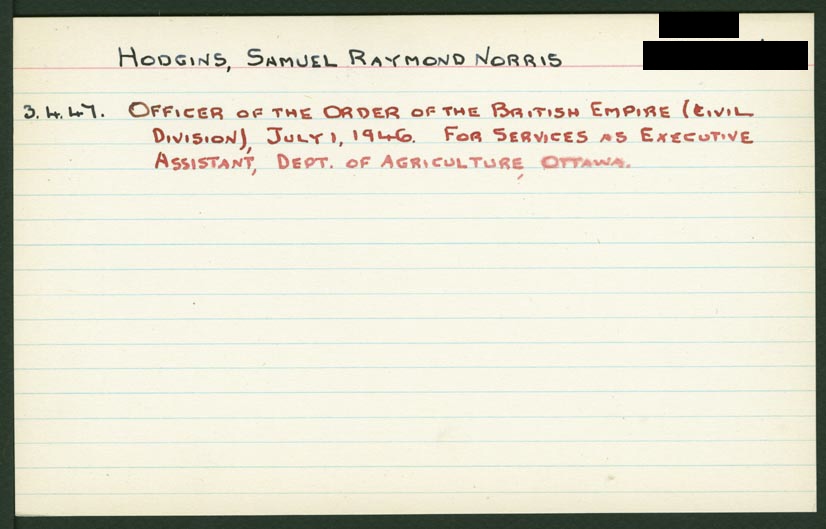 HODGINS, SAMUEL RAYMOND NORRIS
3.4.47. OFFICER OF THE ORDER OF THE BRITISH EMPIRE (CIVIL
DIVISION), JULY 1, 1946. FOR SERVICES AS EXECUTIVE
ASSISTANT, DEPT. OF AGRICULTURE, OTTAWA.